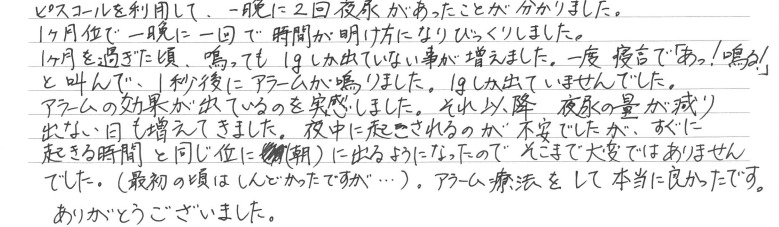 ピスコールを利用して、一晩に2回夜尿があったことが分かりました。
1ヶ月位で一晩に一回で時間が明け方になりびっくりしました。
1ヶ月を過ぎた頃、鳴っても1gしか出ていない事が増えました。一度寝言で「あっ!鳴る!」
と叫んで、1秒後にアラームが鳴りました。1gしか出ていませんでした。
アラームの効果が出ているのを実感しました。それ以降 夜尿の量が減り
出ない日も増えてきました。夜中に起こされるのが不安でしたが、すぐに
起きる時間と同じ位に(朝)に出るようになったのでそこまで大変ではありません
でした。(最初の頃はしんどかったですが…)。アラーム療法をして本当に良かったです。
ありがとうございました。